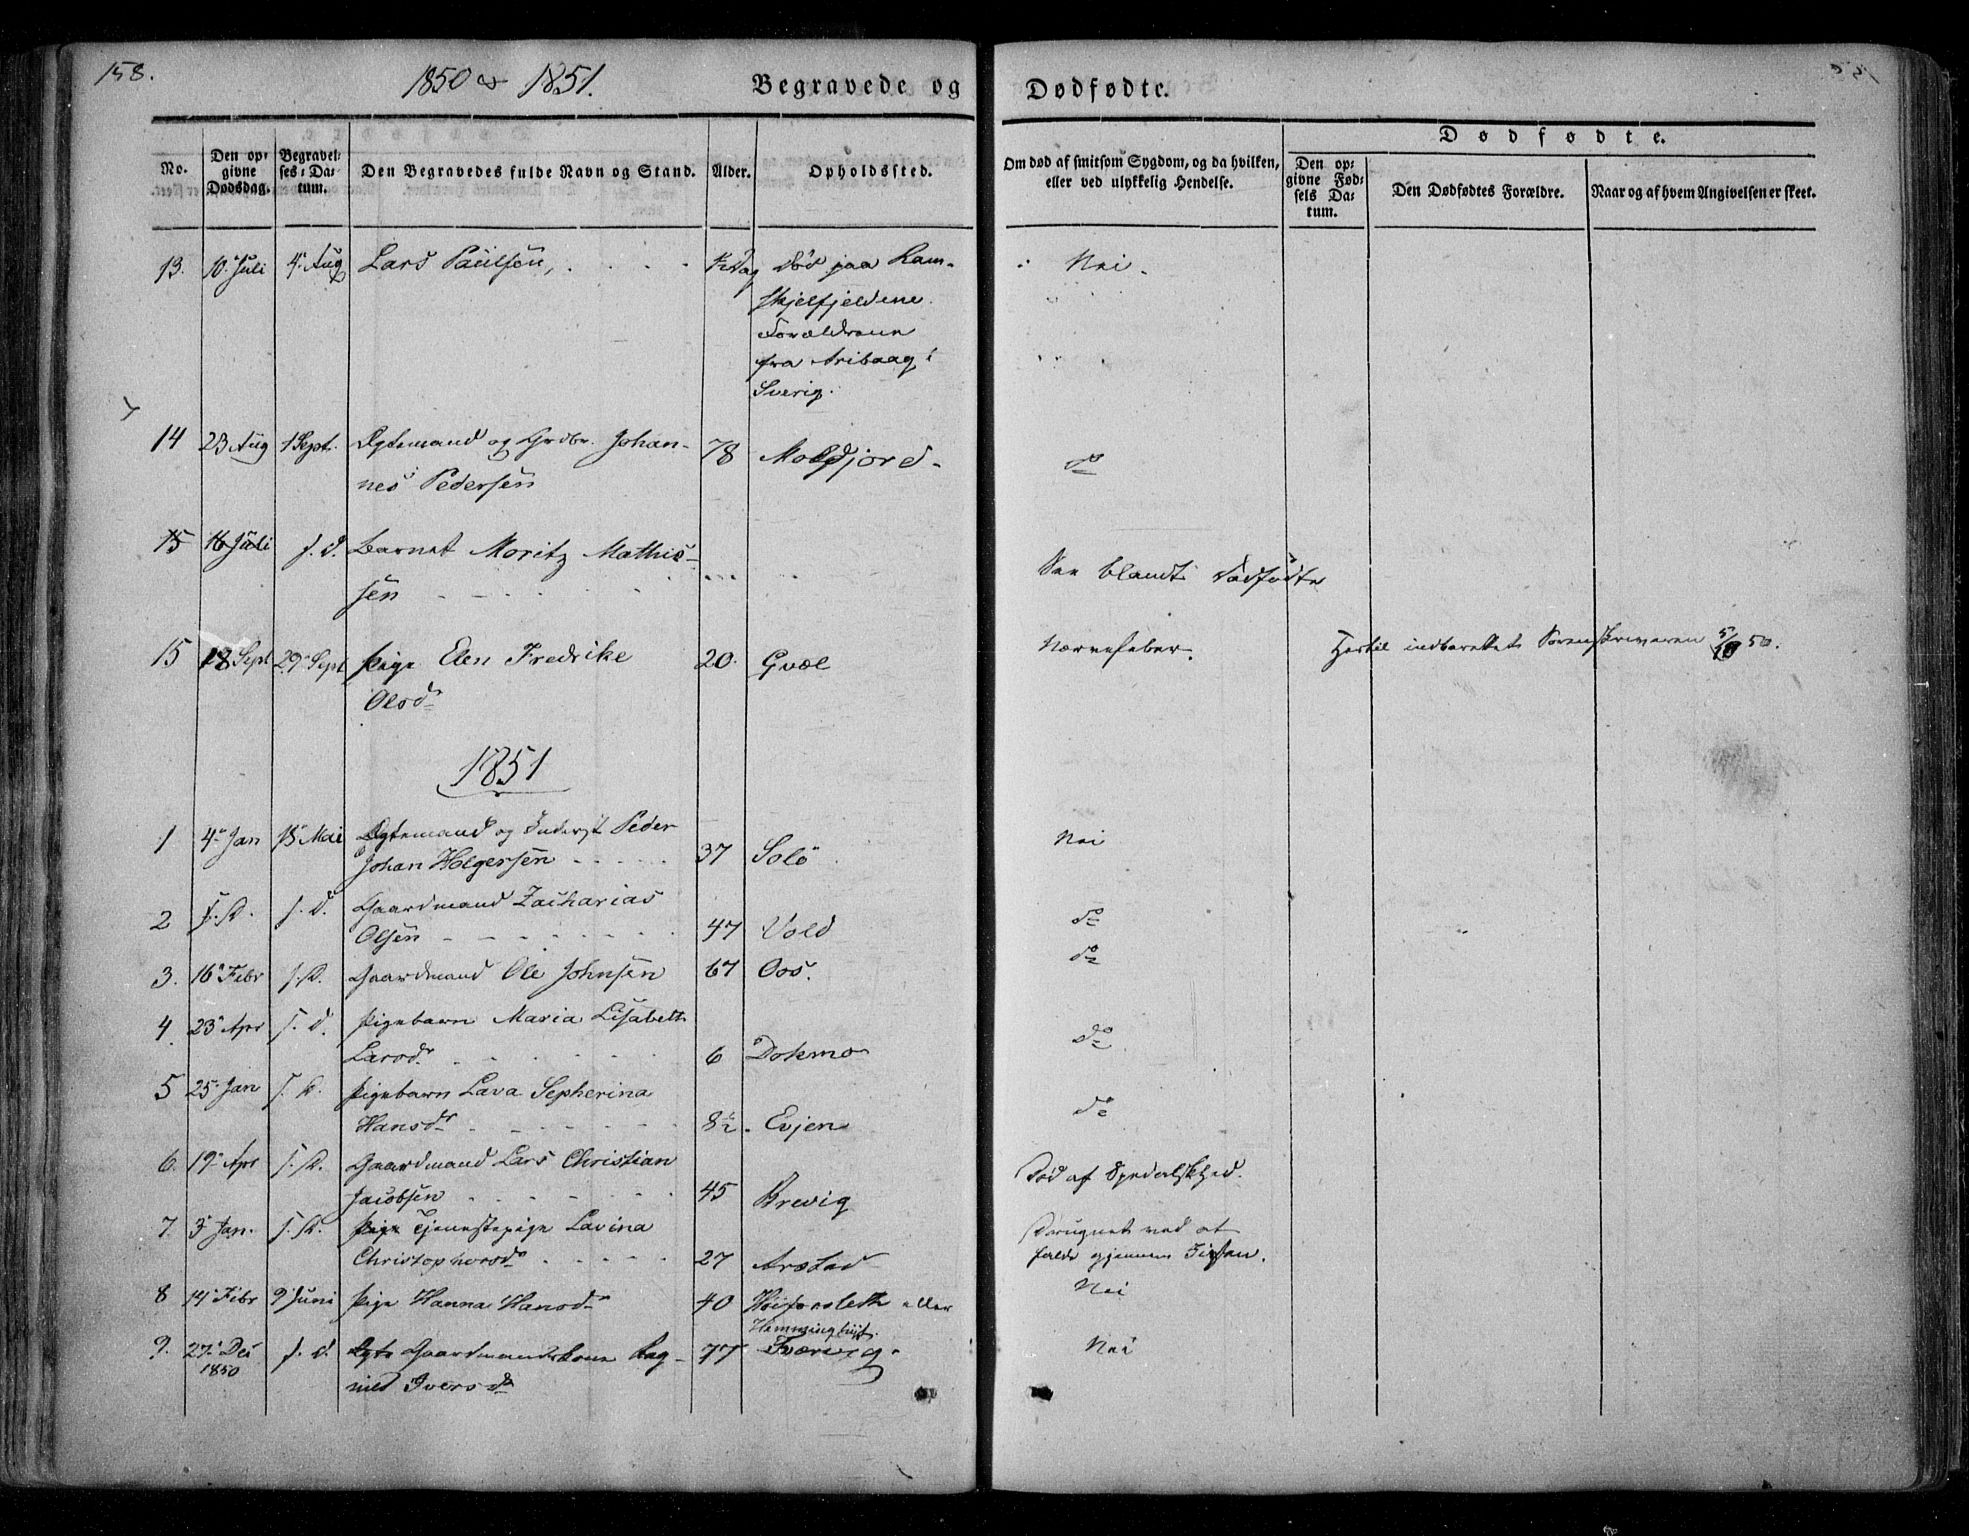 158.
1850 & 1851.
Begravede og Dødfødte.
No.
Den op-
givne
Dødsdag.
Begravel-
ses-Da-
tum.
Den Begravedes fulde Navn og Stand.
Alder.
Opholdssted.
Om død af smitsom Sygdom, og da hvilken,
eller ved ulykkelig Hendelse.
Dødfødte.
Den op-
givne Fød-
sels Da-
tum.
Den Dødfødtes Forældre.
Naar og af hvem Angivelsen er skeet.
13. 10 Juli 4 Aug Lars Paulsen, Død paa Ram- Nei.
skjelfjeldene.
Forældrene
fra Aribaag i
Sverig.
14 23 Aug 1 Sept. Egtemand og Grdbr. Johan- 78 Moldjord. do
nes Pedersen
15 16 Juli s. d. Barnet Moritz Mathis-
sen See blandt Dødfødte
15 18 Sept 29 Sept Pige Elen Fredrike 20. Gvæl Nervefeber. Hertil indberettet Sorenskriveren 5/10 50.
Olsdr
1851
1 4 Jan 18 Mai Egtemand og Inderst Peder
Johan Holgersen 37 Solö Nei
2 s. d. s. d. Gaardmand Zacharias
Olsen 47 Vold do
3. 16 Febr s. d. Gaardmand Ole Johnsen 67 Oos. do
4. 23 Apr s. d. Pigebarn Maria Lisabeth
Larsdr 6 Dokmo do
5 25 Jan s. d. Pigebarn Lava Sepherina
Hansdr 8½. Evjen do
6. 19 Apr s. d. Gaardmand Lars Christian
Jacobsen 45 Brevig Død af Spedalskhed.
7. 3 Jan. s. d. Pige Tjenestepige Lavina
Christophersdr 27 Arstad Druknet ved at
falde gjennem Iisen.
8 14 Febr 9 Juni Pige Hanna Hansdr 40 Höiforsleth eller Nei
Hemminghyt.
9. 27 Dec s. d. Egte Gaardmandskone Rag- 77 Tvervig. Nei
1850 nild Iversdr